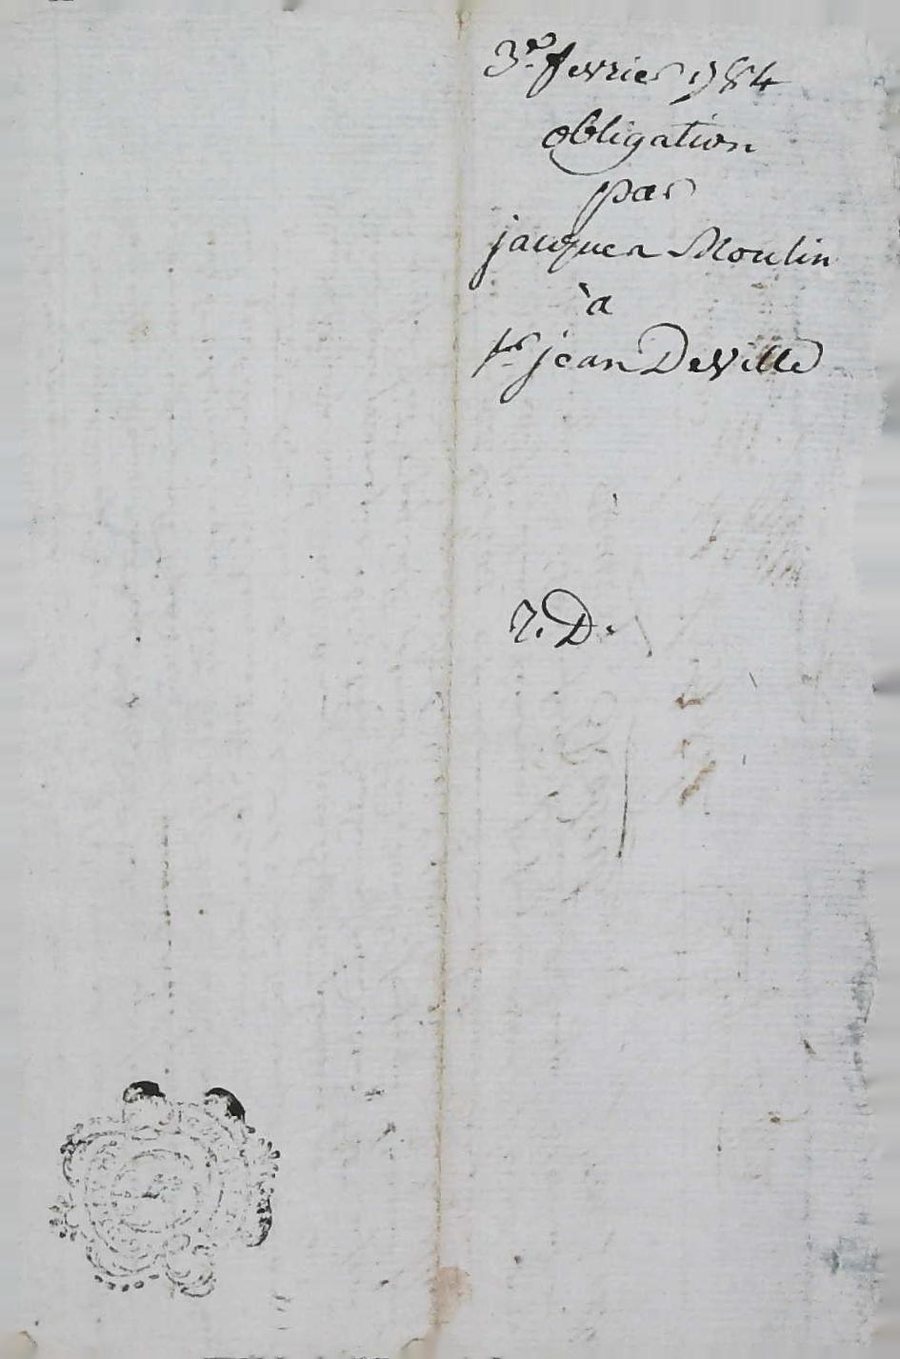 3e. fevrier 1784
obligation
par
jacques Moulin
à
sr jean Deville
2. D.